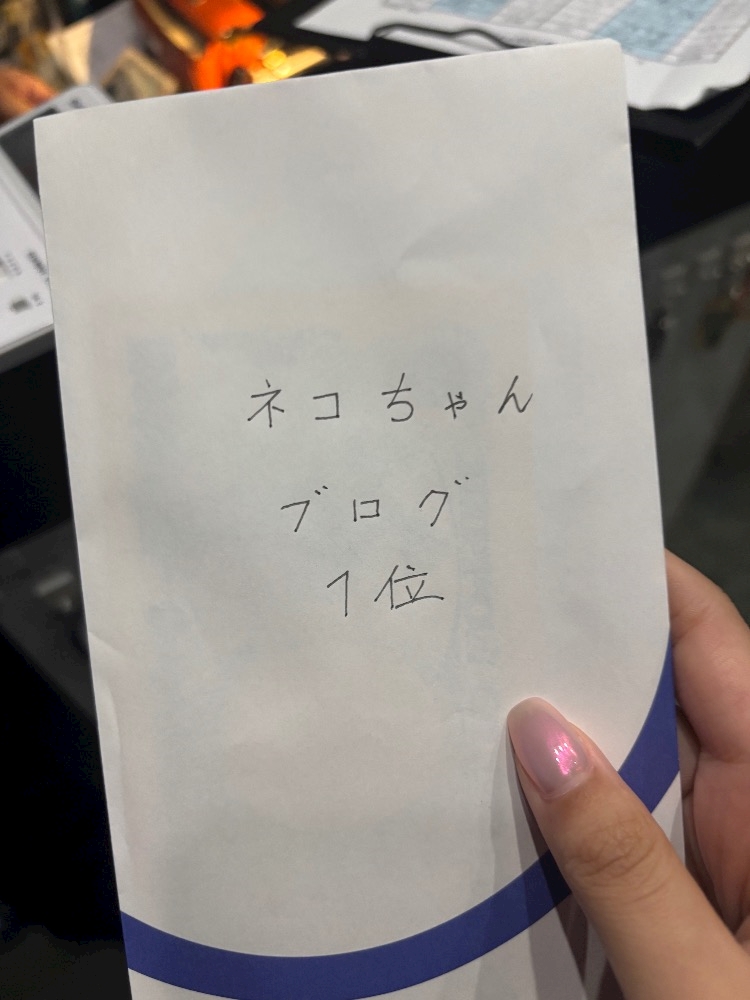 ネコちゃん
ブログ
1位